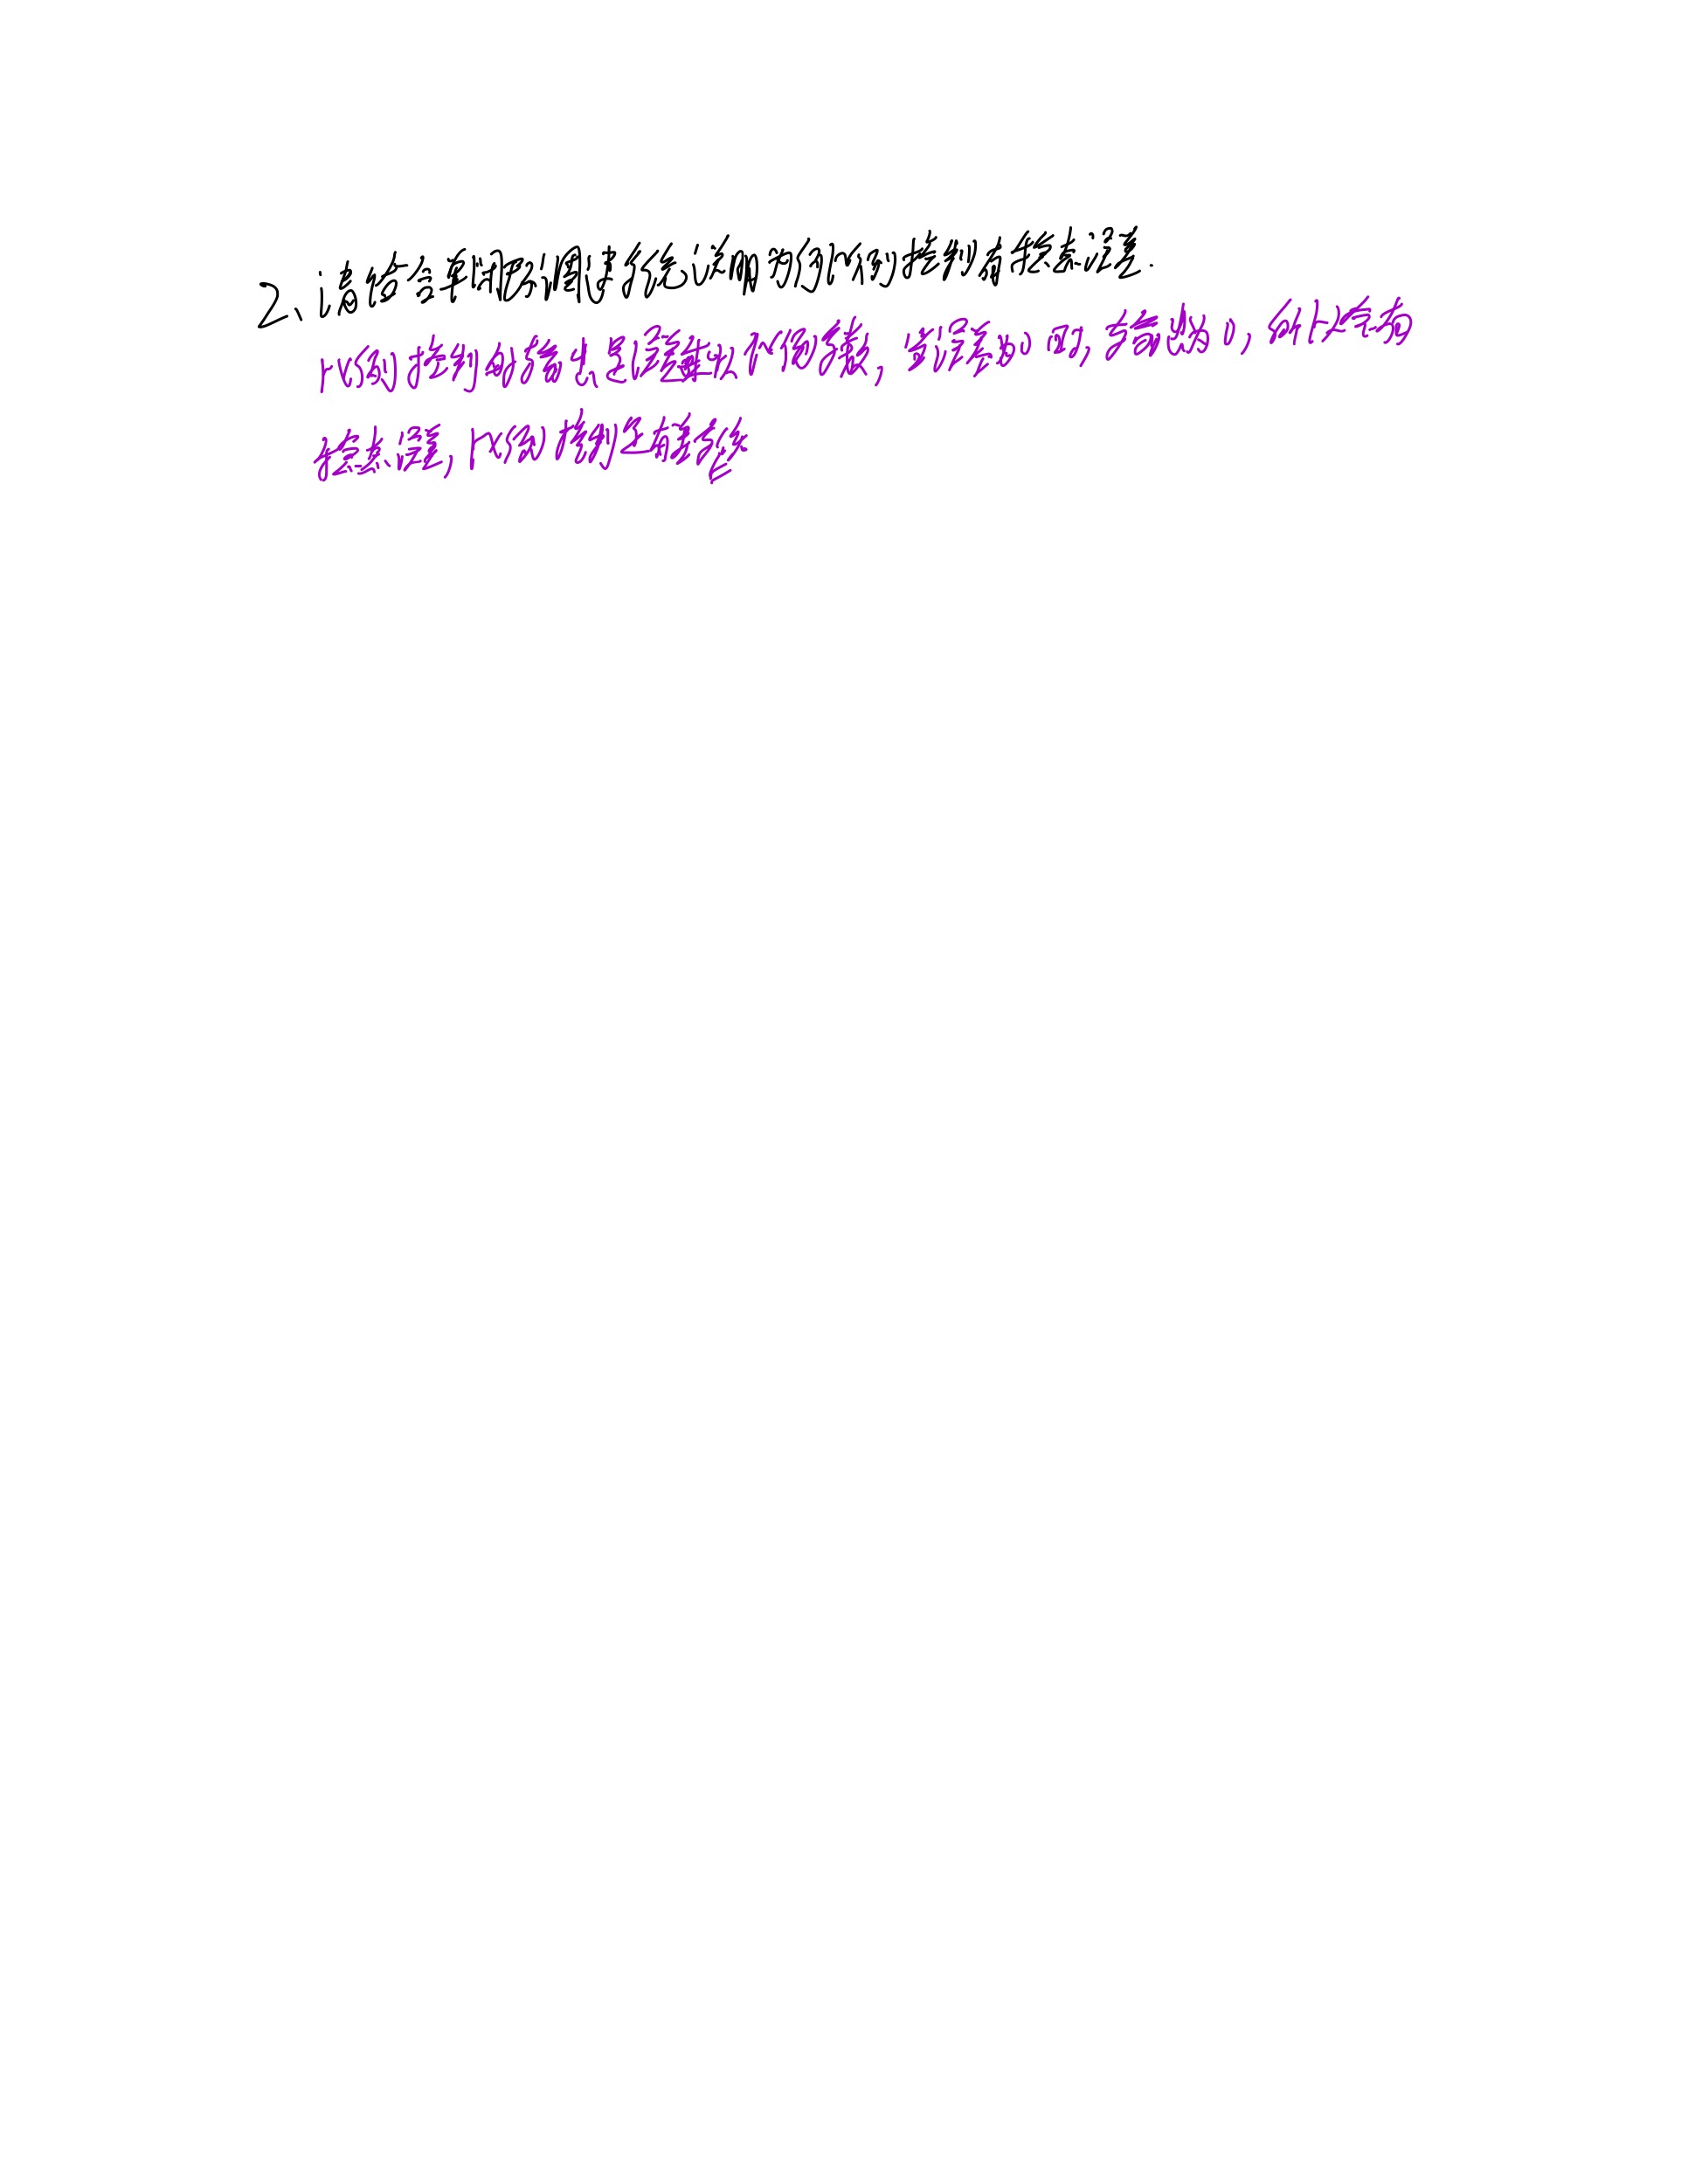 2、请结合单闭环调速系统说明为何比例控制有稳态误差.
比例控制的输出是误差乘以比例系数, 当误差为0时, 输出为0, 所以会有
稳态误差, 比例控制是有差系统